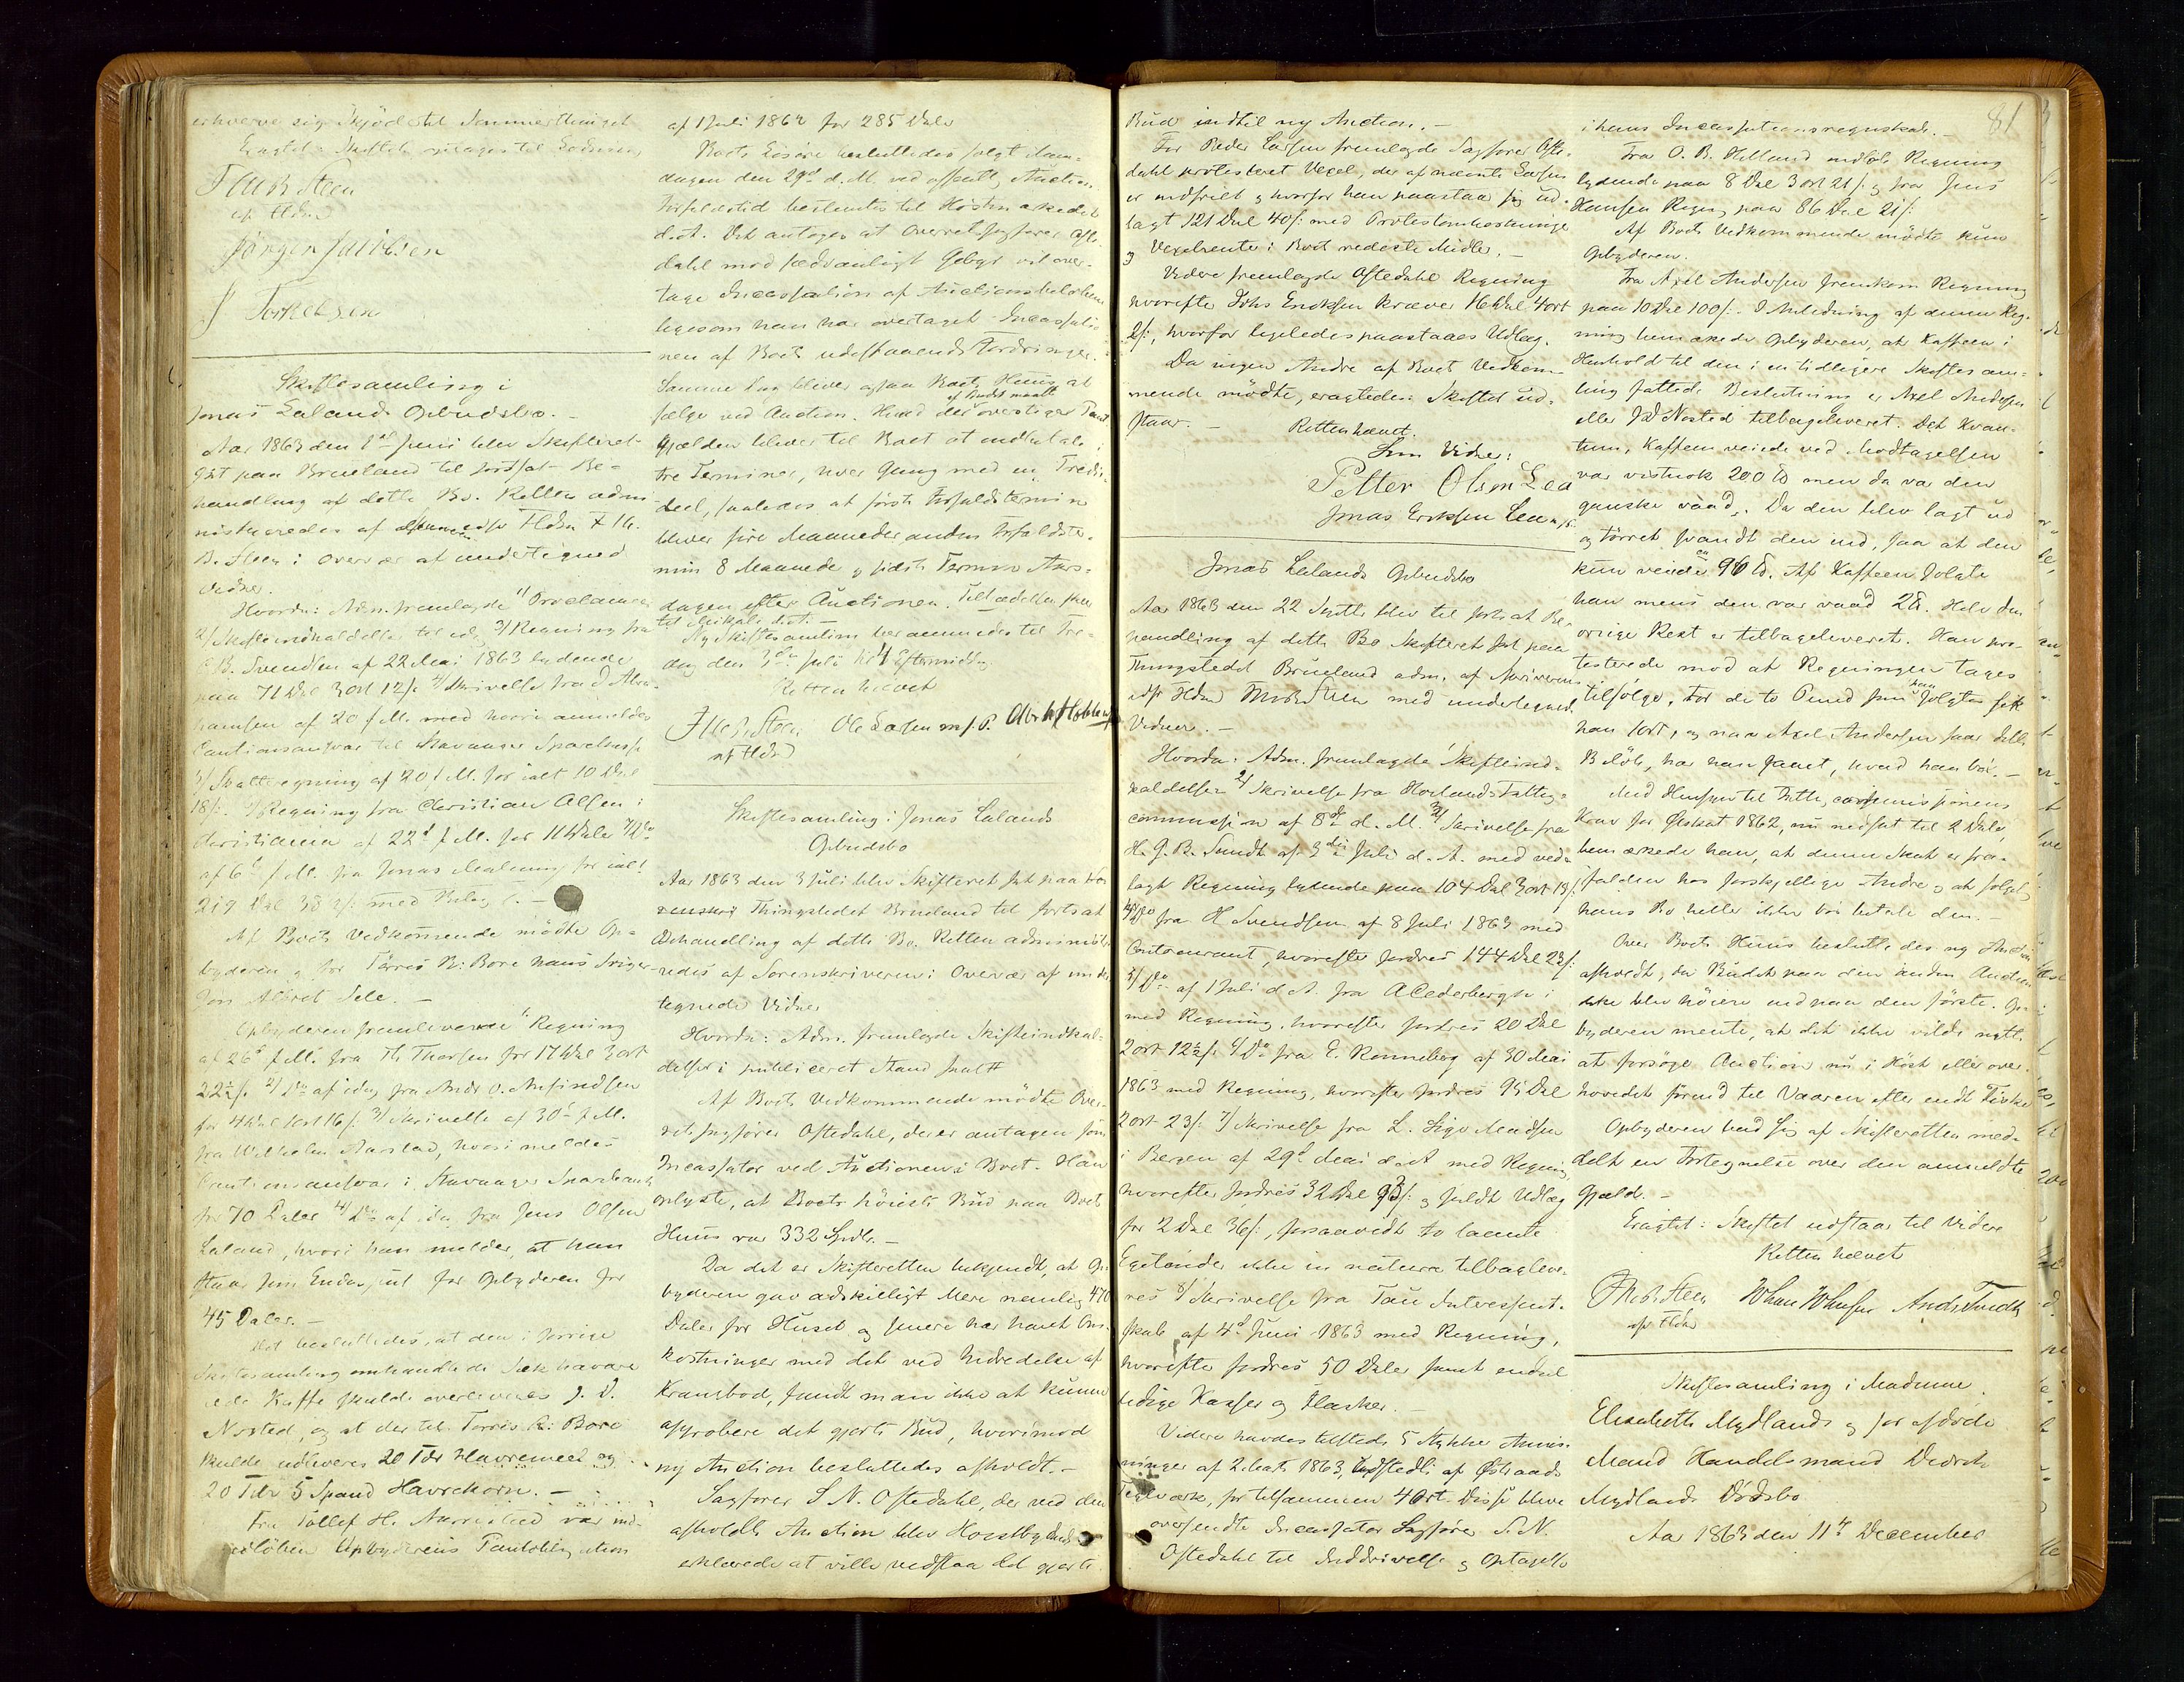 erhverve sig Skjöde til Sommerthinget
Eragtet: Skiftet optages til Endsning
ThB Steen
efr Hdm
Jörgen Jacobsen
J Torkelsen
Skiftesamling i
Jonas Lalands Opbudsbo. -
Aar 1863 den 1ste Juni blev Skifteret
sat paa Brueland til fortsat Be-
handling af dette Bo. Retten admi
nistreredes af efr Hdm Th.
B. Steen i Overvær af undertegnede
Vidner.
Hvorda: Adm. fremlagde 1/ Proclama
2/ Skifteindkaldelse til idag 3/ Regning fra
B. Svendsen af 22 Mai 1863 lydende
paa 71 Dal 3 ort 12 s. 4/ Skrivelse fra J Abra-
hamsen af 20 f.M. med hvori anmeldes
Cautionsansvar til Stavanger Sparekasse
5/ Skatteregning af 20 f.M. for ialt 10 Dal
18 s. 6/ Regning fra Christian Olsen i
Christiania af 22d f.M. for 11 Dale 7/ Do
af 6te f.M. fra Jonas Malming for ialt
219 Dal 38 s. med Bilag. -
Af Boets Vedkommende mödte Op-
byderen og for Törres R: Bore hans Sviger-
sön Albret Sele. -
Opbyderen fremleverede 1/ Regning
af 26d f.M. fra Th Thorsen for 17 Dal 3 ort
22½ s. 2/ Do af idag fra Andr O. Anfindsen
for 4 Dal 1 ort 16 s. 3/ Skrivelse af 30te f.M.
fra Wilhelm Aarstad, hvori meldes
Cautionsansvar i Stavanger Sparebank
for 70 Daler 4/ Do af idag fra Jens Olsen
Laland, hvori han melder at han
staar som Endossent for Opbyderen for
45 Daler. -
Det besluttedes, at den i forrige
Skiftesamling omhandlede Sæk havare
rede Kaffe skulde overleveres J. D.
Nosted, og at der til Torris R: Bore
skulde udleveres 20 Tdr Havremeel og
20 Tdr 5 Spand Havrekorn. -
Fra Tollef H. Aarrestad var ind-
löben Opbyderens Pantobligation
af 1 Juli 1862 for 285 Daler
Boets Lösöre besluttedes solgt Man-
dagen den 29d d.M. ved offentlig Auction.
Forfaldstid bestemtes til Höstmarkedet
d.A. Det antoges at Overretssagförer Ofte-
dahl mod sædvanligt Gebyr vil over-
tage Incassation af Auctionsbelöbene
ligesom han har overtaget Incassatio
nen af Boets udestaaende Fordringer.
Samme Dag bliver ogsaa Boets Huus at
sælge ved Auction. Hvad der af Budet maatte overstiger Pant-
gjælden bliver til Boet at indbetale i
tre Terminer, hver Gang med en Tredie-
deel, saaledes at förste Forfaldstermin
bliver fire Maaneder anden Forfaldster-
min 8 Maaneder og sidste Termin Aars-
dagen efter Auctionen. Tiltrædelsen sker
til Mikkeli d.A. -
Ny Skiftesamling berammedes til Fre-
dag den 3die Juli Kl 4 Eftermiddag
Retten hævet
ThB Steen Ole Larsen m/P.
efr Hdm
Skiftesamling i Jonas Lalands
Opbudsbo
Aar 1863 den 3 Juli blev Skifteret sat paa
Thingstedet Brueland til fortsat
Behandling af dette Bo. Retten administ
redes af Sorenskriveren i Overvær af under
tegnede Vidner
Hvorda: Adm. fremlagde Skifteindkal-
delser i publiceret Stand
Af Boets Vedkommende mödte Over-
retssagförer Oftedahl, der er antagen som
Incassator ved Auctionen i Boet. Han
oplyste, at Boets höieste Bud paa Boets
Huus var 332 Spdlr. -
Da det er Skifteretten bekjendt, at Op-
byderen gav adskilligt Mere nemlig 470
Daler for Huset og senere har havt Om-
kostninger med det ved Indredelse af
Krambod, fandt man ikke at kunne
approbere det gjorte Bud, hvorimod
ny Auction besluttedes afholdt. -
Sagförer S N. Oftedahl, der ved den
afholdte Auction blev Höistbydende
erklærede at ville vedstaa det gjorte
81
Bud indtil ny Auction. -
For Peder Larsen fremlagde Sagförer Ofte-
dahl protesteret Vexel, der af nævnte Larsen
er indfriet og hvorfor han paastaar sig ud-
lagt 121 Dal 40 s. med Protestomkostninger
og Vexelrenter i Boets redeste Midler. -
Videre fremlagde Oftedahl Regning
hvorefter Johs Ericksen kræver 16 Dal 4 ort
2 s., hvorfor ligeledes paastaaes Udlæg.
Da ingen Andre af Boets Vedkom-
mende mödte, eragtedes: Skiftet ud-
staar. -
Retten hævet.
Som Vidner:
Petter Olsen Lea
Jonas Eriksen Lea
Jonas Lalands Opbudsbo
Aar 1863 den 22 Septb blev til fortsat Be-
handling af dette Bo Skifteret sat paa
Thingstedet Brueland adm. af Skriveren
edsv Hdm ThB Steen med undertegnede
Vidner. -
Hvorda: Adm. fremlagde Skifteind-
kaldelser 2/ Skrivelse fra Hovlands Fattig-
commission af 8de d.M. 3/ Skrivelse fra
H. G. B. Sundt af 3die Juli d.A. med ved-
lagt Regning lydende paa 104 Dal 3 ort 13 s.
4/ Do fra H Svendsen af 8 Juli 1863 med
Contocurant, hvorefter fordres 144 Dal 23 s.
5/ Do af 1 Juli d.A. fra A Cederbergh i
med Regning, hvorefter fordres 20 Dal
2 ort 12½ s. 6/ Do fra E. Ronneberg af 30 Mai
1863 med Regning, hvorefter fordres 95 Dal
2 ort 23 s. 7/ Skrivelse fra L. Sigv Madsen
i Bergen af 29d Mai d.A. med Regning
hvorefter fordres 32 Dal 93 s. og fuldt Udlæg
for 2 Dal 36 s., forsaavidt to laante
Gjenstande ikke in natura tilbagleve-
res 8/ Skrivelse fra Tau Interessent-
skab af 4d Juni 1863 med Regning,
hvorefter fordres 50 Daler samt endeel
ledige Kasser og Flasker. -
Videre havdes tilstede 5 Stykker Anvis-
ninger af 2 Marts 1863, udstedte af Östraads
Teglværk, for tilsammen 40 rt. Disse bleve
oversendte Incassator Sagförer S. N.
Oftedahl til Inddrivelse og Optagelse
i hans Incassationsregnskab. -
Fra O. B. Helland indlöb Regning
lydende paa 8 Dal 3 ort 21 s. og fra Jens
Hansen Regng paa 86 Dal 21 s.
Af Boets Vedkommende mödte kun
Opbyderen.
Fra Axel Andersen fremkom Regning
paa 10 Dal 100 s. I Anledning af denne Reg-
ning bemærkede Opbyderen, at Kaffeen i
Henhold til den i en tidligere Skiftesam-
ling fattede Beslutning er Axel Andersen
eller JD Nosted tilbageleveret. Det Kvan-
tum, Kaffeen veiede ved Modtagelsen
var vistnok 200 ℔ men da var den
ganske vaad. Da den blev lagt ud
og törret svandt den ind, saa at den
kun veiede 96 ℔. Af Kaffeen solgte
han mens den var vaad 2 ℔. Hele den
övrige Rest er tilbageleveret. Han pro-
testerede mod at Regningen tages
tilfölge, for de to Pund som han solgte fik
han 1 ort, og naar Axel Andersen faar dette
Belöb, har han faaet, hvad han bör. -
Med Hensyn til Fattigcommissionens
Krav for Ölskat 1862, nu nedsat til 2 Daler,
bemærkede han, at denne Skat er fra-
falden hos forskjellige Andre og at fölgelig
hans Bo heller ikke bör betale den. -
Over Boets Huus besluttedes ny Auction
afholdt, da Budet paa den anden Auction
ikke blev höiere end paa den förste. Op-
byderen mente, at det ikke vilde nytte
at forsöge Auction nu i Höst eller over-
hovedet förend til Vaaren efter endt Fiske
Opbyderen bad sig af Skifteretten med-
delt en Fortegnelse over den anmeldte
Gjæld. -
Eragtet: Skiftet udstaar til videre
Retten hævet
ThB Steen Johan Johnsen Andr Tvedt
efr Hdm
Skiftesamling i Madame
Elisabeth Mydlands og for afdöde
Mand Handelsmand Diedrik
Mydlands Dödsbo
Aar 1863 den 11te December